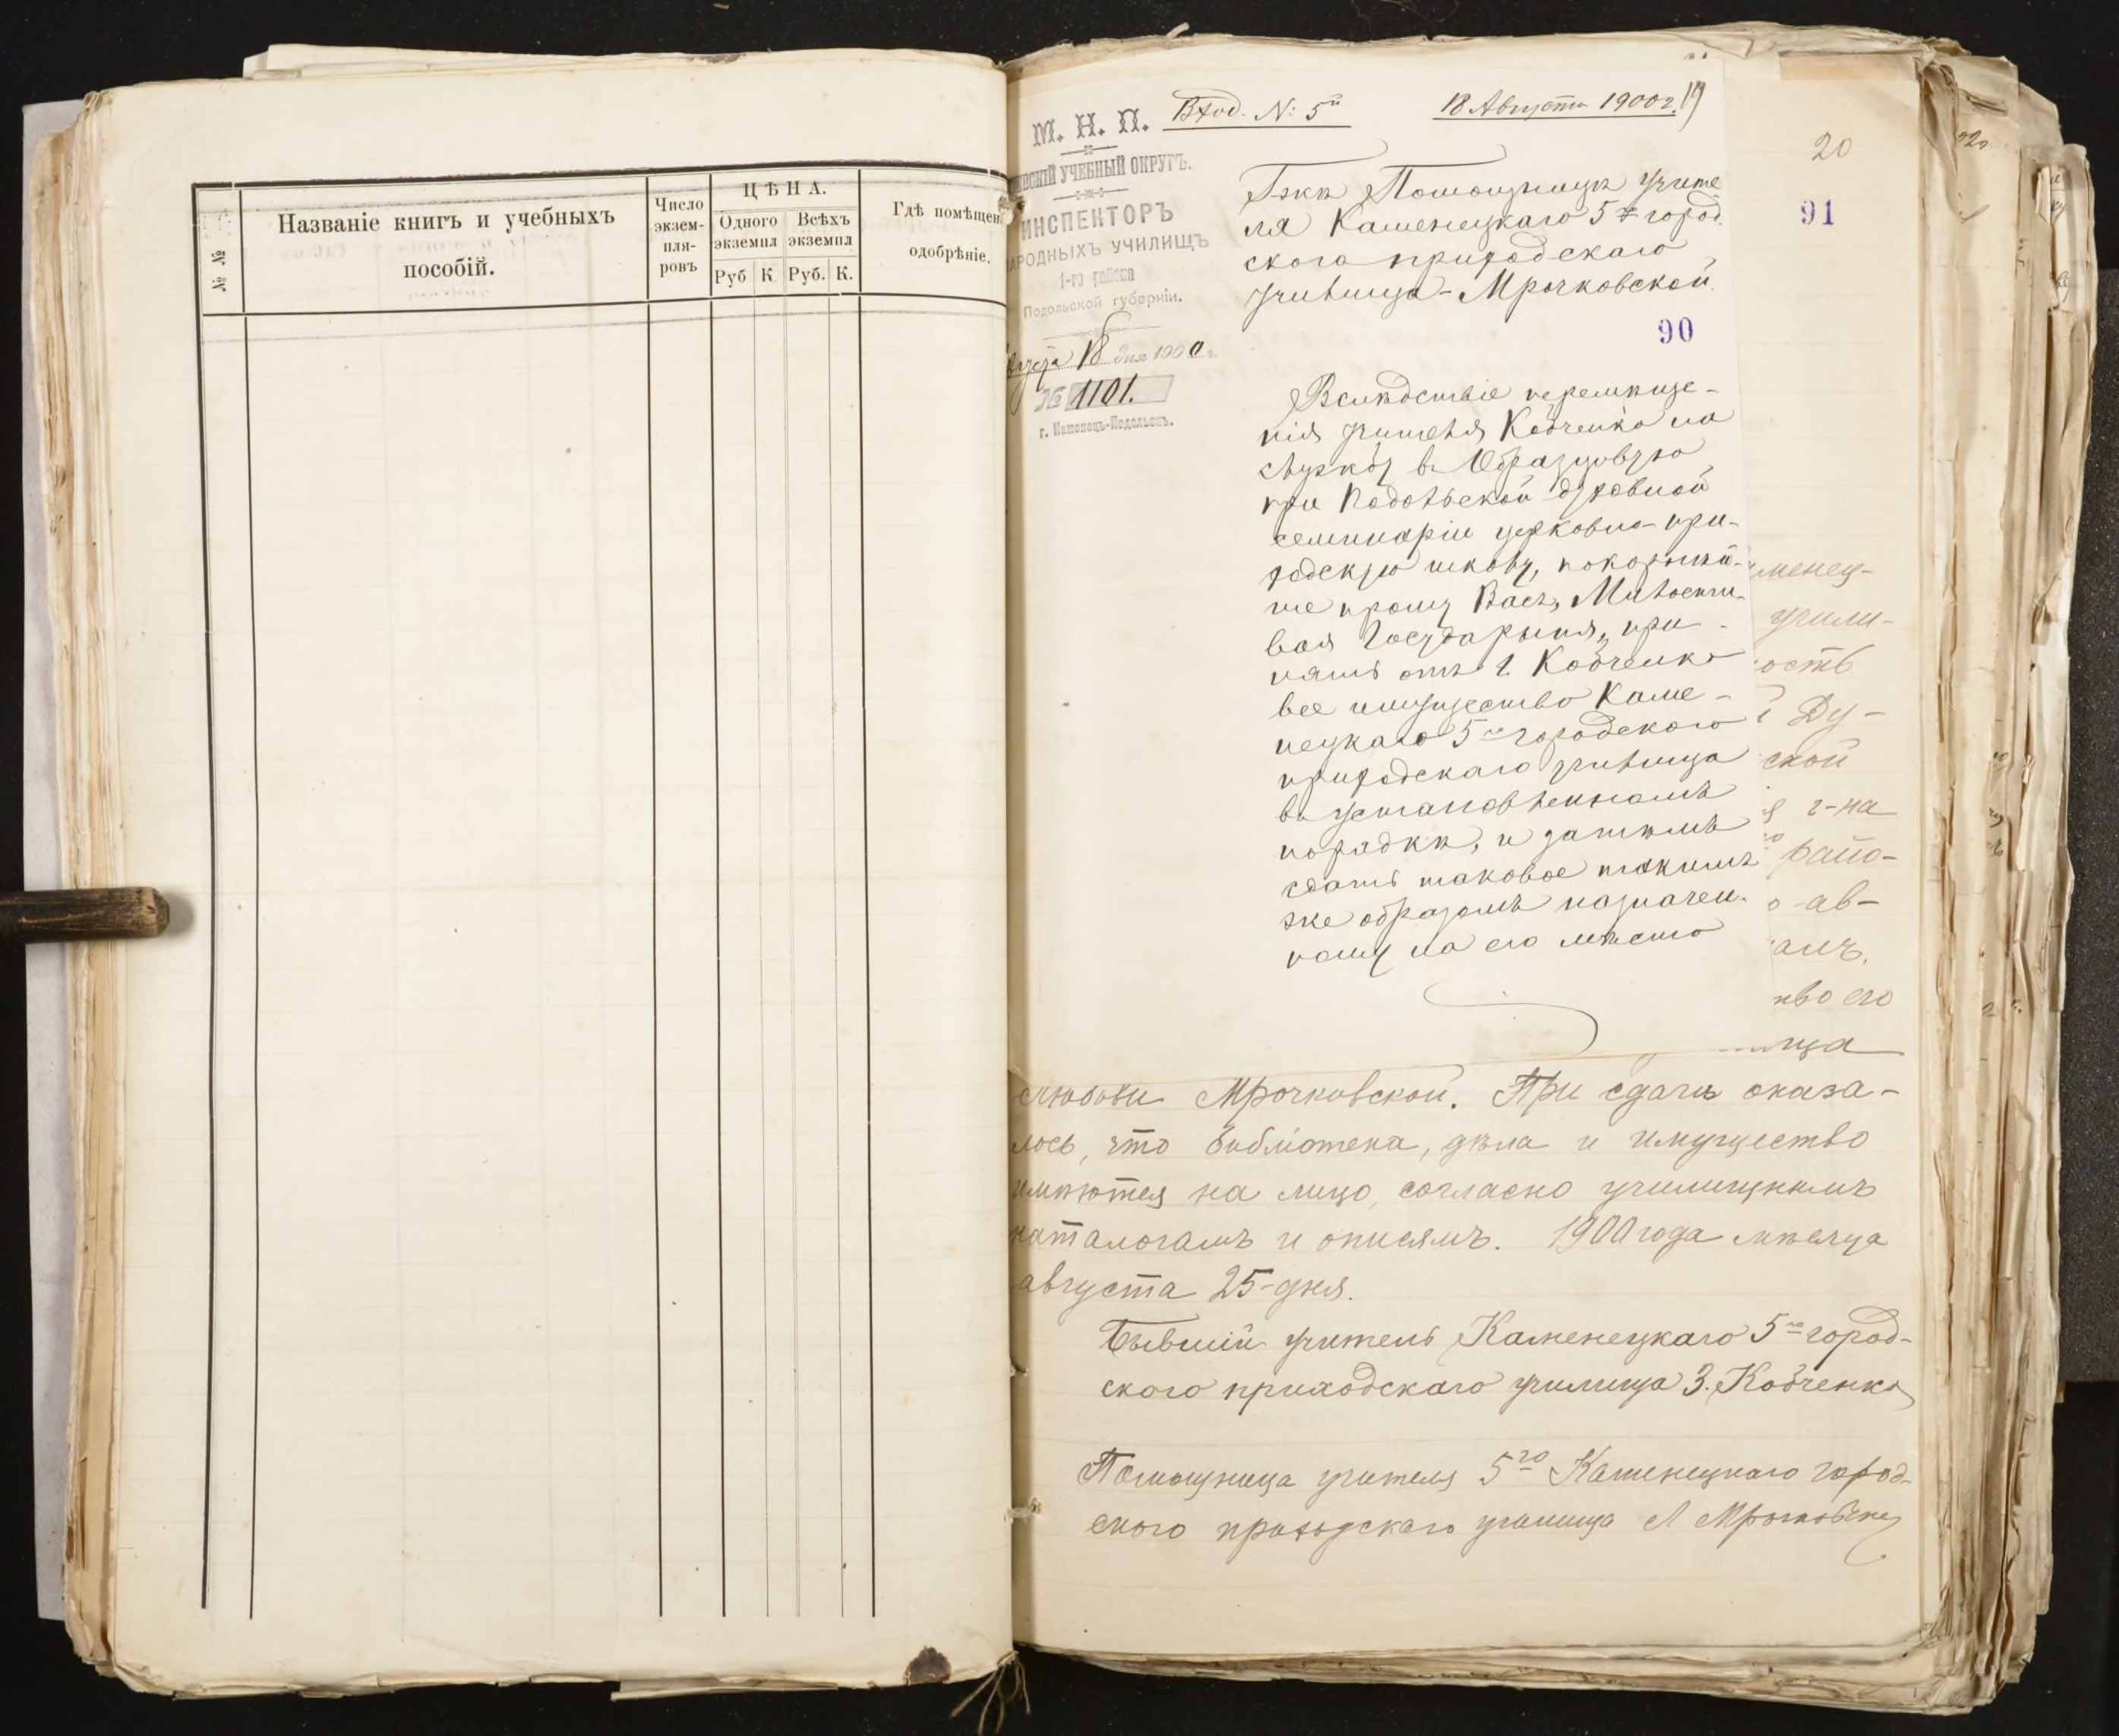 № №
Названіе книгъ и учебныхъ
пособій.
Число
экзем-
пля-
ровъ
ЦѢНА.
Одного
экземпл
Всѣхъ
экземпл
Руб К Руб. К.
Гдѣ помѣщен
одобрѣніе.
М. Н. П.
ВСКІЙ УЧЕБНЫЙ ОКРУГЪ.
ИНСПЕКТОРЪ
АРОДНЫХЪ УЧИЛИЩЪ
1-го района
Подольской губерніи.
Августа 18 дня 1900 г.
№ 1101.
г. Каменецъ-Подольскъ.
Вход. №: 5й
18 Августа 1900 г.
19
Г-жѣ Помощницѣ Учите
ля Каменецкаго 5го город
ского приходскаго
училища - Мрочковской.
90
Вслѣдствіе перемѣще-
нія учителя Кобченко на
службу въ Образцовую
при Подольской духовной
семинаріи церковно-при-
ходскую школу, покорнѣй-
ше прошу Васъ, Милости-
вая Государыня, при-
нять отъ г. Кобченко
все имущество Каме-
нецкаго 5го городского
приходскаго училища
въ установленномъ
порядкѣ, и затѣмъ
сдать таковое такимъ
же образомъ назначен-
ному на его мѣсто
20
91
менец-
учили-
ость
Ду-
ской
г-на
райо-
о ав-
амъ.
тво его
ща
Любови Мрочковской. При сдачѣ оказа-
лось, что библіотека, дѣла и имущество
имѣются на лицо, согласно училищнымъ
каталогамъ и описямъ. 1900 года мѣсяца
августа 25-дня.
Бывшій учитель Каменецкаго 5го город-
ского приходскаго училища З. Кобченко
Помощница учителя 5го Каменецкаго город-
ского приходскаго училища Л Мрочковская